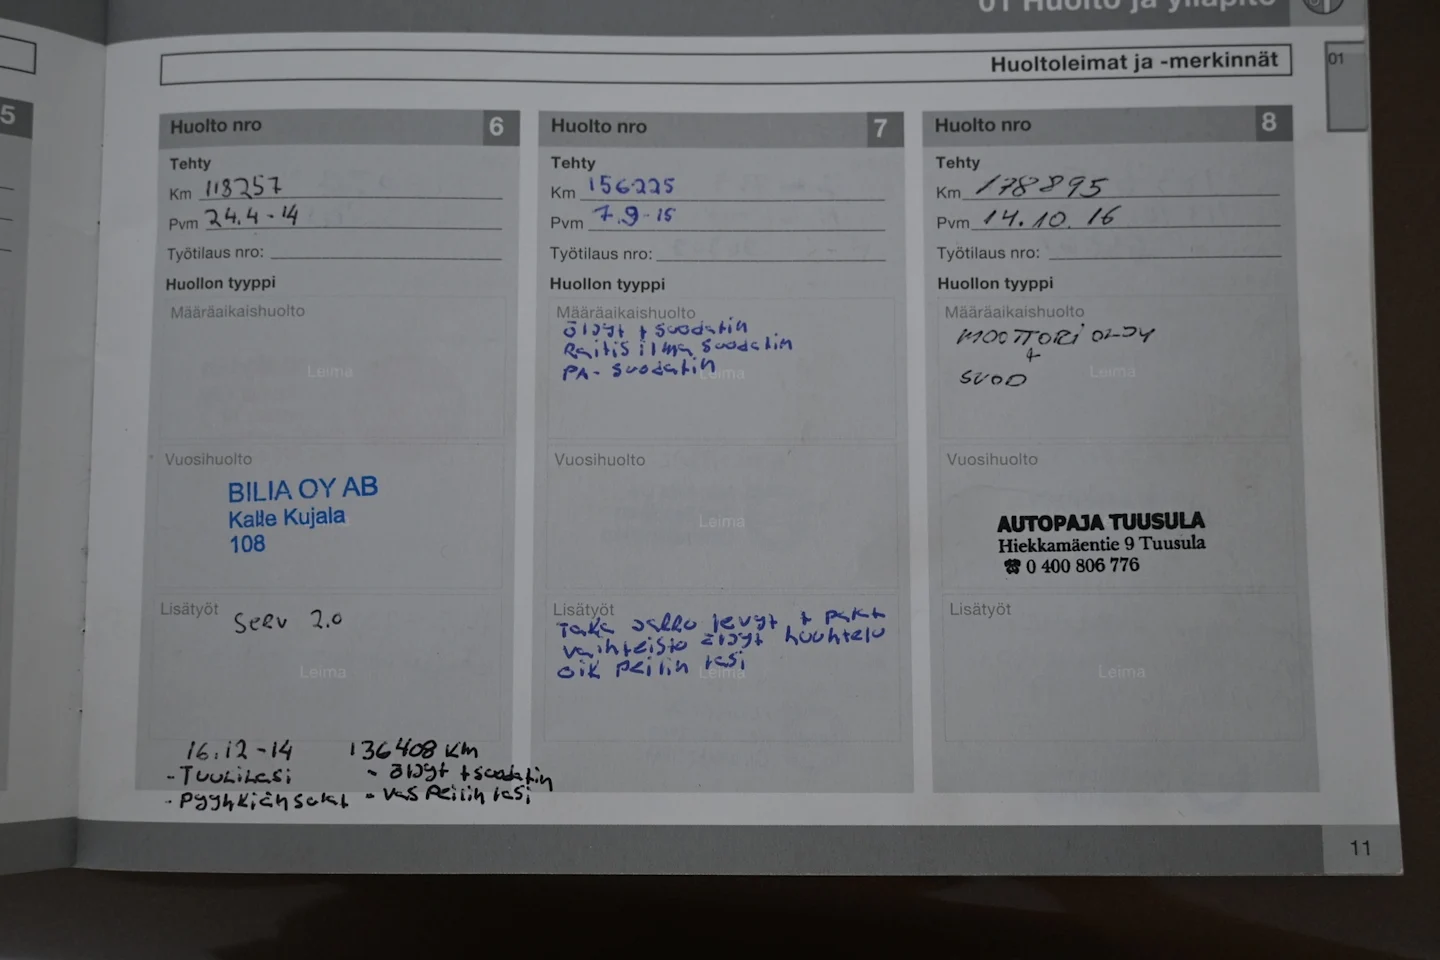 01 Huolto ja ylläpito
Huoltoleimat ja -merkinnät
01
5
Huolto nro 6
Tehty
Km 118257
Pvm 24.4-14
Työtilaus nro:
Huollon tyyppi
Määräaikaishuolto
Leima
Vuosihuolto
BILIA OY AB
Kalle Kujala
108
Lisätyöt
Serv 2.0
Leima
16.12-14 136408 km
-Tuulilasi - öljyt + suodatin
- pyyhkiänsulat - vas peilin lasi
Huolto nro 7
Tehty
Km 156225
Pvm 7.9-15
Työtilaus nro:
Huollon tyyppi
Määräaikaishuolto
öljyt + suodatin
Raitis ilma suodatin
PA- suodatin
Leima
Vuosihuolto
Leima
Lisätyöt
Taka jarru levyt + palat
vaihteisto öljyt huuhtelu
oik peilin lasi
Leima
Huolto nro 8
Tehty
Km 178895
Pvm 14.10.16
Työtilaus nro:
Huollon tyyppi
Määräaikaishuolto
MOOTTORI ÖLJY
+
SUOD
Leima
Vuosihuolto
AUTOPAJA TUUSULA
Hiekkamäentie 9 Tuusula
☎ 0 400 806 776
Lisätyöt
Leima
11